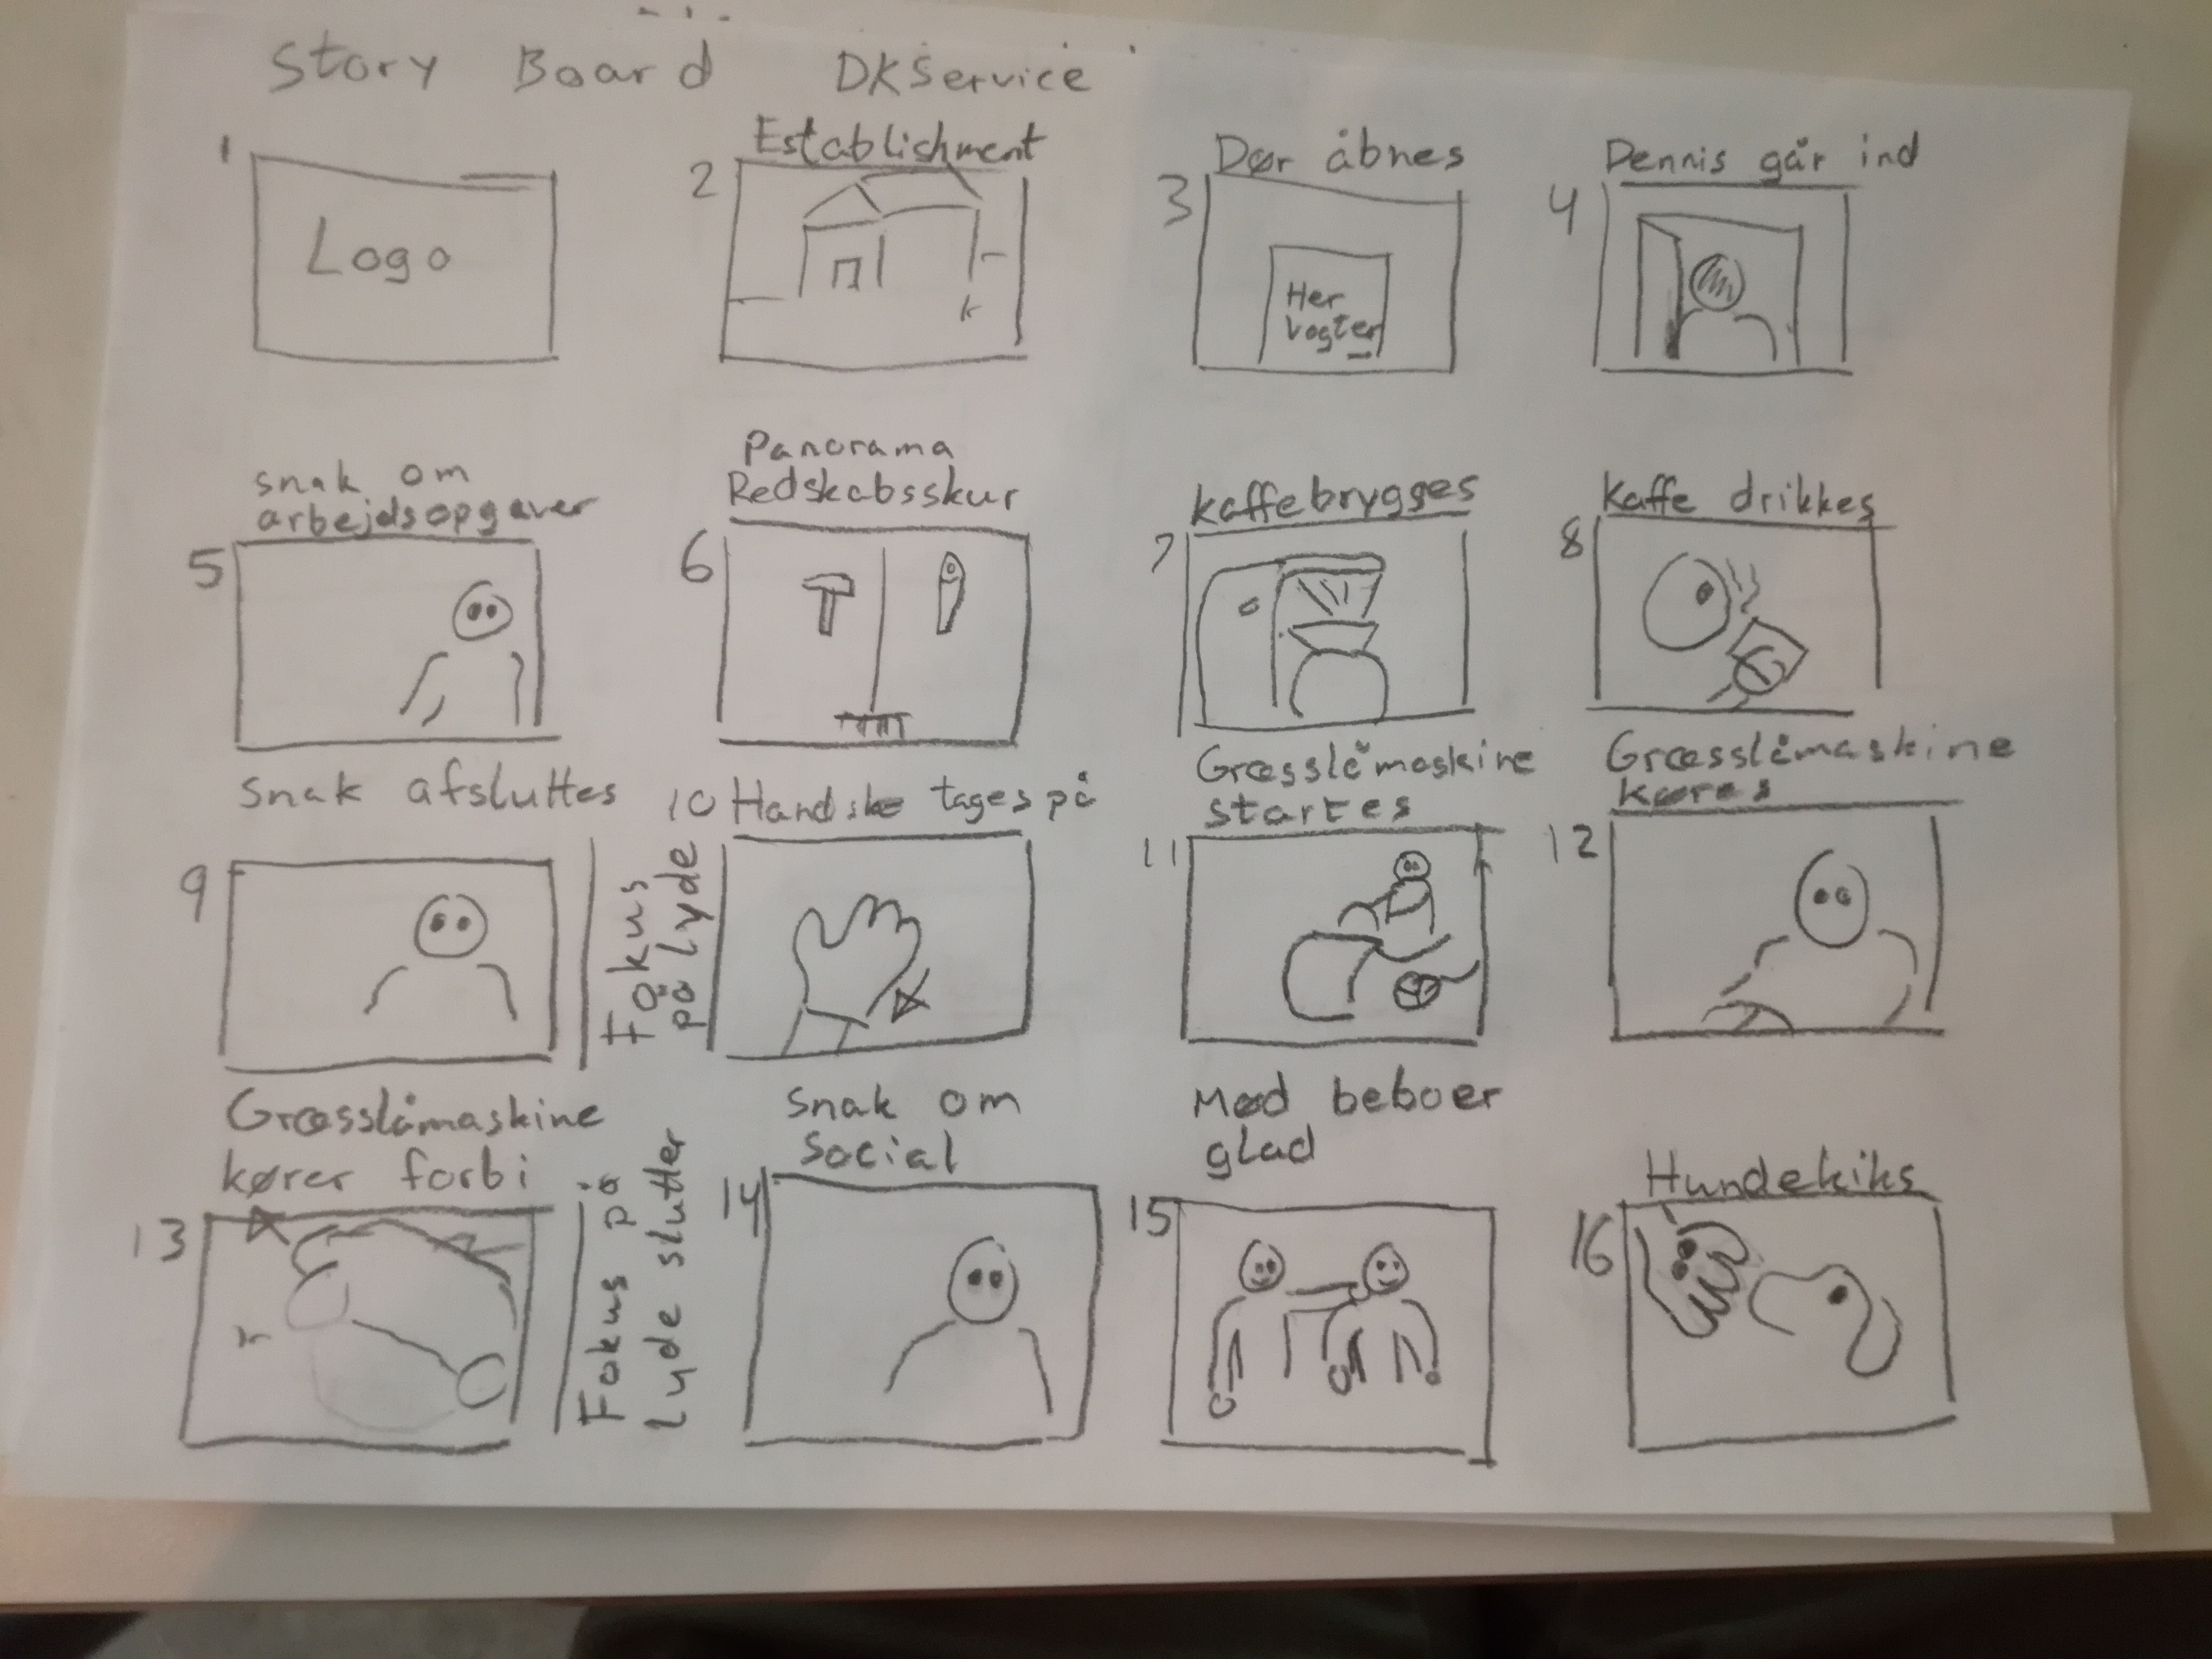 Story Board DKService
1
Logo
Establishment
2
Dør åbnes
3
Her
Vogter
Dennis går ind
4
snak om
arbejdsopgaver
5
Panorama
Redskabsskur
6
kaffebrygges
7
Kaffe drikkes
8
Snak afsluttes
9
Fokus
på lyde
10 Handske tages på
Græsslåmaskine
startes
11
Græsslåmaskine
køres
12
Græsslåmaskine
kører forbi
13
Fokus på
lyde slutter
snak om
social
14
Mød beboer
glad
15
Hundekiks
16